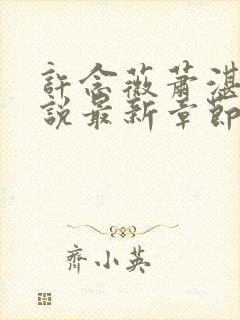 許念薇蕭湛
說最新章節
齊小英